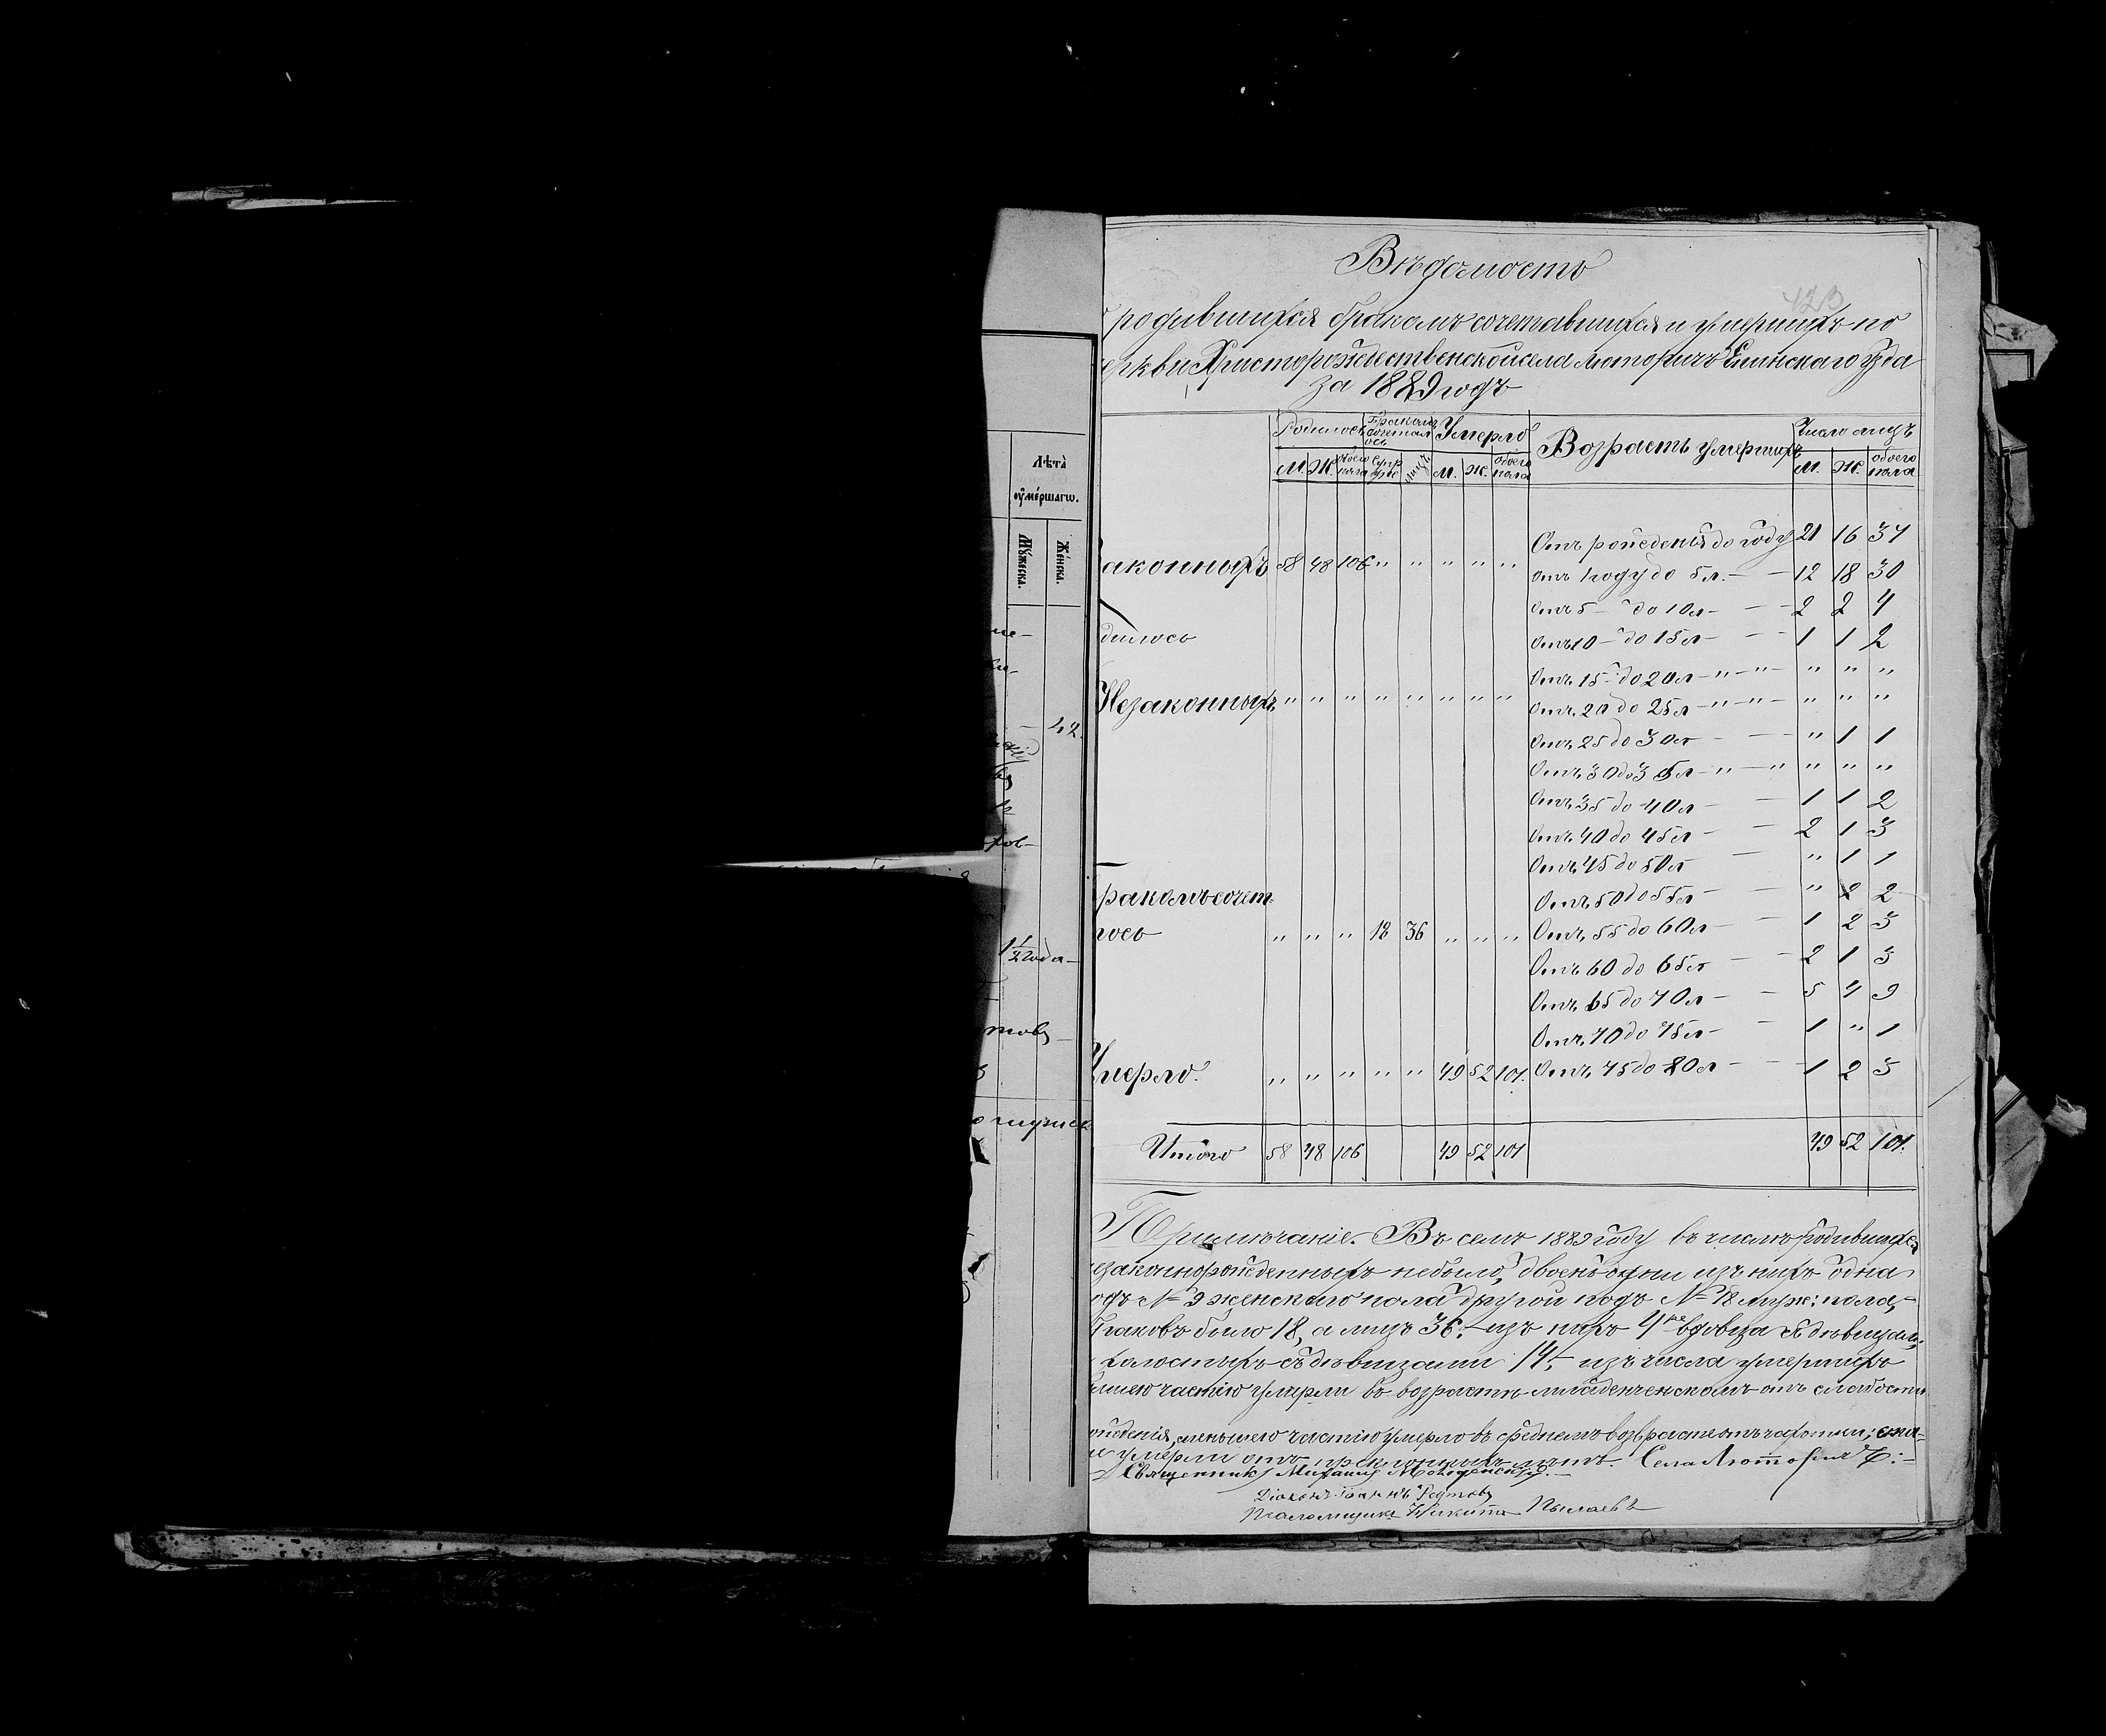 Лѣта
оумершагѡ.
Мужеска.
Женска.
42.
1 1/2 года
Вѣдомость
423
родившихся бракомъ сочетавшихся и умершихъ по
еркви Христорождественской села Люторичъ Епифанскаго Уѣзда
за 1889 годъ
Родилось Бракомъ сочеталось Умерло Возрастъ умершихъ Число лицъ
М. Ж. обоего пола лицъ М. Ж. обоего пола М. Ж. обоего пола
Отъ рожденія до году 21 16 37
аконныхъ 58 48 106 " " " " "
отъ 1 году до 5 л. — — 12 18 30
Отъ 5 — до 10 л — — 2 2 4
дилось
Отъ 10 — до 15 л — — 1 1 2
Отъ 15 — до 20 л — " — " — " " "
Незаконныхъ " " " " " " " "
Отъ 20 до 25 л — " — " — " " "
Отъ 25 до 30 л — — " 1 1
Отъ 30 до 35 л — " — " " " "
Отъ 35 до 40 л — — 1 1 2
Отъ 40 до 45 л — — 2 1 3
Отъ 45 до 50 л — " 1 1
ракомъ сочет
Отъ 50 до 55 л — — " 2 2
лось " " " 18 36 " " "
Отъ 55 до 60 л — — 1 2 3
Отъ 60 до 65 л — — 2 1 3
Отъ 65 до 70 л — — 5 4 9
Отъ 70 до 75 л — — 1 " 1
Умерло. " " " " " 49 52 101.
Отъ 75 до 80 л — — 1 2 3
Итого 58 48 106 49 52 101 49 52 101.
Примѣчаніе. Въ семъ 1889 году въ числѣ родившихся
езаконнорожденныхъ небыло, двоень одни изъ нихъ одна
одъ № 9 женскаго пола другой подъ № 18 муж: пола,
Браковъ было 18, а лицъ 36. — изъ нихъ 4 вдовца съ дѣвицами;
холостыхъ съ дѣвицами 14. — изъ числа умершихъ
шею частію умерли въ возрастѣ младенческомъ отъ слабости
ожденія, меньшею частію умерло въ среднемъ возврастѣ отъ чахотки; ста-
е умерли отъ преклонныхъ лѣтъ. Села Люторичъ:
Священникъ Михаилъ
Діаконъ Іоаннъ
Псаломщикъ Никита Пылаевъ